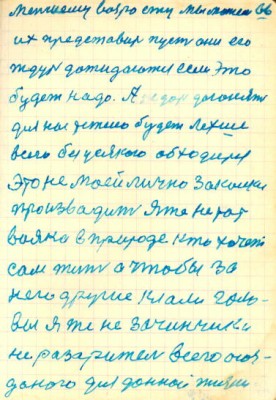 меншему возро сту мы можем
их представил пуст они его
ждут дотидаютця если это
будет надо. А догонят
для нас легшо будет легше
всего без усякого обходимся
Это не моей лично законки
произвадит я та не
ваяка в природе кто хочет
сам жит а чтобы за
него другие клали голо-
вы я та не зачинчик и
не разарител всего соз-
даного для данной жизни